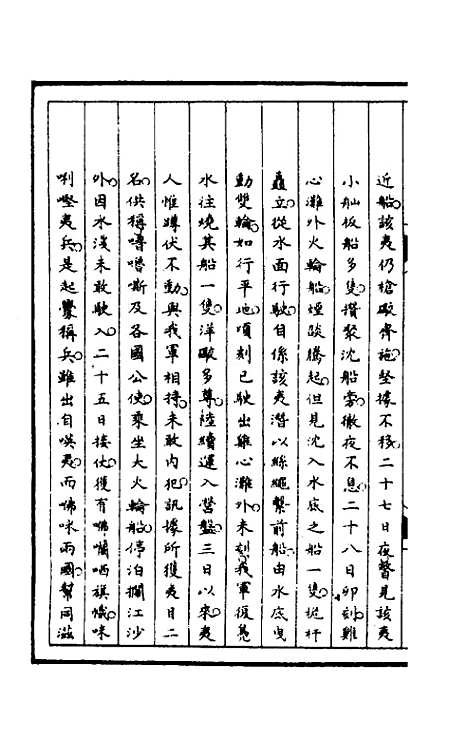 近船該夷仍槍礮齊施堅據不移二十七日夜瞥見該夷
小舢板船多隻攢聚沈船旁徹夜不息二十八日卯刻雞
心灘外火輪船煙燄騰起但見沈入水底之船一隻桅杆
矗立從水面行駛自係該夷潛以絲繩繫前船由水底曳
動雙輪如行平地頃刻已駛出雞心灘外未刻我軍復鳧
水往燒其船一隻洋礮多尊陸續運入營盤三日以來夷
人惟蹲伏不動與我軍相持未敢內犯訊據所獲夷目二
名供稱嘚嚕嘶及各國公使乘坐大火輪船停泊攔江沙
外因水淺未敢駛入二十五日接仗獲有咈囒哂旗幟咪
唎𠼤夷兵是起釁稱兵雖出自𠸄夷而咈咪兩國幫同滋